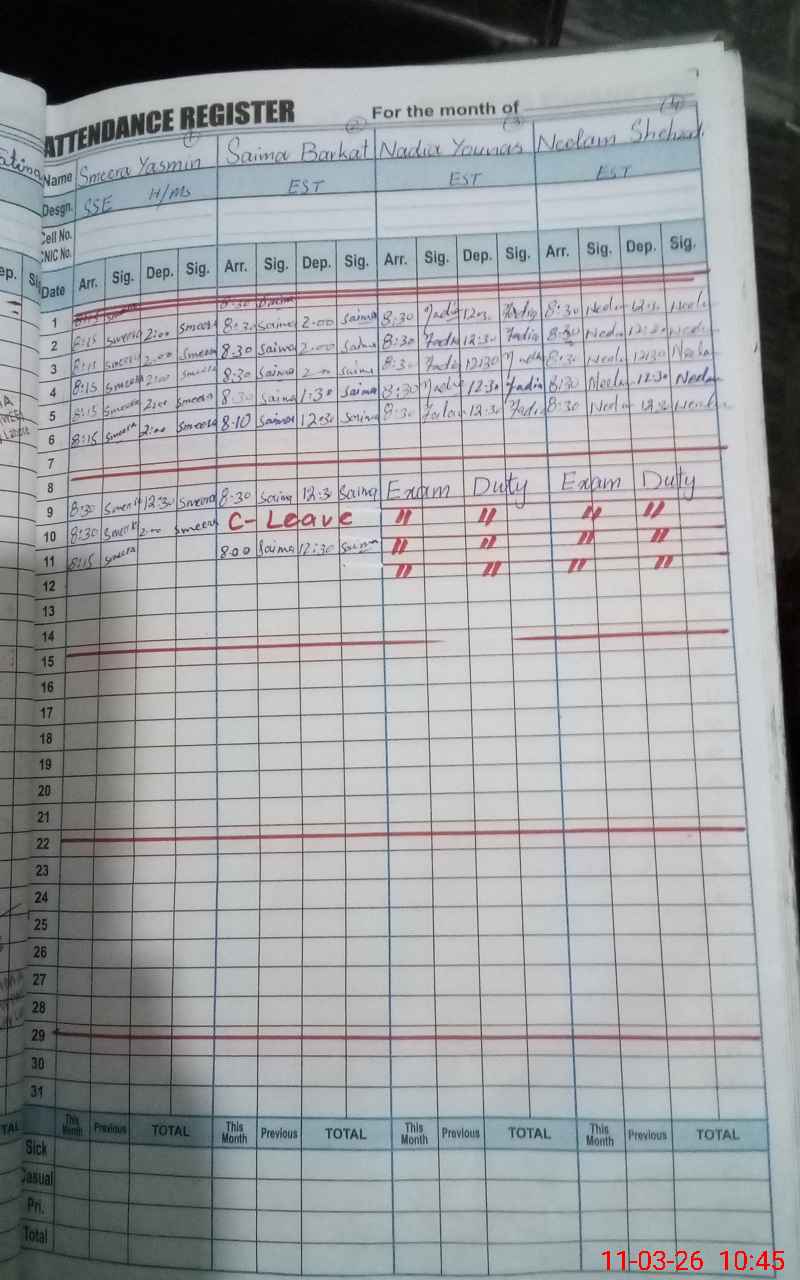 ATTENDANCE REGISTER For the month of
(1) (2) (3) (4)
Name Smeera Yasmin Saima Barkat Nadia Younas Neelam
Desgn. SSE H/Ms EST EST EST
Cell No.
CNIC No.
Date Arr. Sig. Dep. Sig. Arr. Sig. Dep. Sig. Arr. Sig. Dep. Sig. Arr. Sig. Dep. Sig.
1
2 8:15 Smeera 2:00 Smeera 8:30 Saima 2:00 Saima 8:30 Nadia 12:30 Nadia 8:30
3 8:15 Smeera 2:00 Smeera 8:30 Saima 2:00 Saima 8:30 Nadia 12:30 Nadia 8:30
4 8:15 Smeera 2:00 Smeera 8:30 Saima Saima 8:30 Nadia 12:30 Nadia 8:30 12:30
5 8:15 Smeera 2:00 Smeera 8:30 Saima 1:30 Saima 8:30 Nadia 12:30 Nadia 8:30 Neelam 12:30 Neelam
6 8:15 Smeera 2:00 Smeera 8:10 Saima 12:30 Saima 8:30 12:30 Nadia 8:30
7
8
9 8:30 Smeera 12:30 Smeera 8:30 Saima 12:30 Saima Exam Duty Exam Duty
10 8:30 Smeera 2:00 Smeera C-Leave " " " "
11 8:15 Smeera 8:00 Saima 12:30 Saima " " " "
12 " " " "
13
14
15
16
17
18
19
20
21
22
23
24
25
26
27
28
29
30
31
This Month Previous TOTAL This Month Previous TOTAL This Month Previous TOTAL This Month Previous TOTAL
Sick
Casual
Pri.
Total
11-03-26 10:45